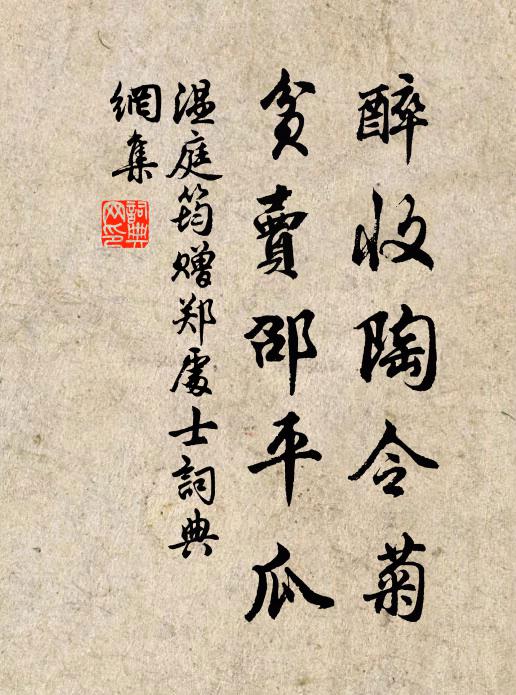 醉收陶令菊
貧賣邵平瓜
温庭筠贈郑處士詞典
網集
詞典
网印